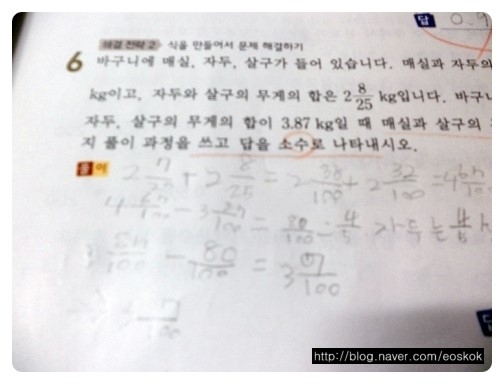 답 0.9
해결 전략 2 식을 만들어서 문제 해결하기
6 바구니에 매실, 자두, 살구가 들어 있습니다. 매실과 자두의
kg이고, 자두와 살구의 무게의 합은 2 8/25 kg입니다. 바구니
자두, 살구의 무게의 합이 3.87 kg일 때 매실과 살구의
지 풀이 과정을 쓰고 답을 소수로 나타내시오.
풀이 2 7/20 + 2 8/25 = 2 /100 + 2 32/100 = 4
4 /100 - 3 87/100 = 80/100 = 4/5 자두는 4/5
3 87/100 - 80/100 = 3 07/100
답
http://blog.naver.com/eoskok